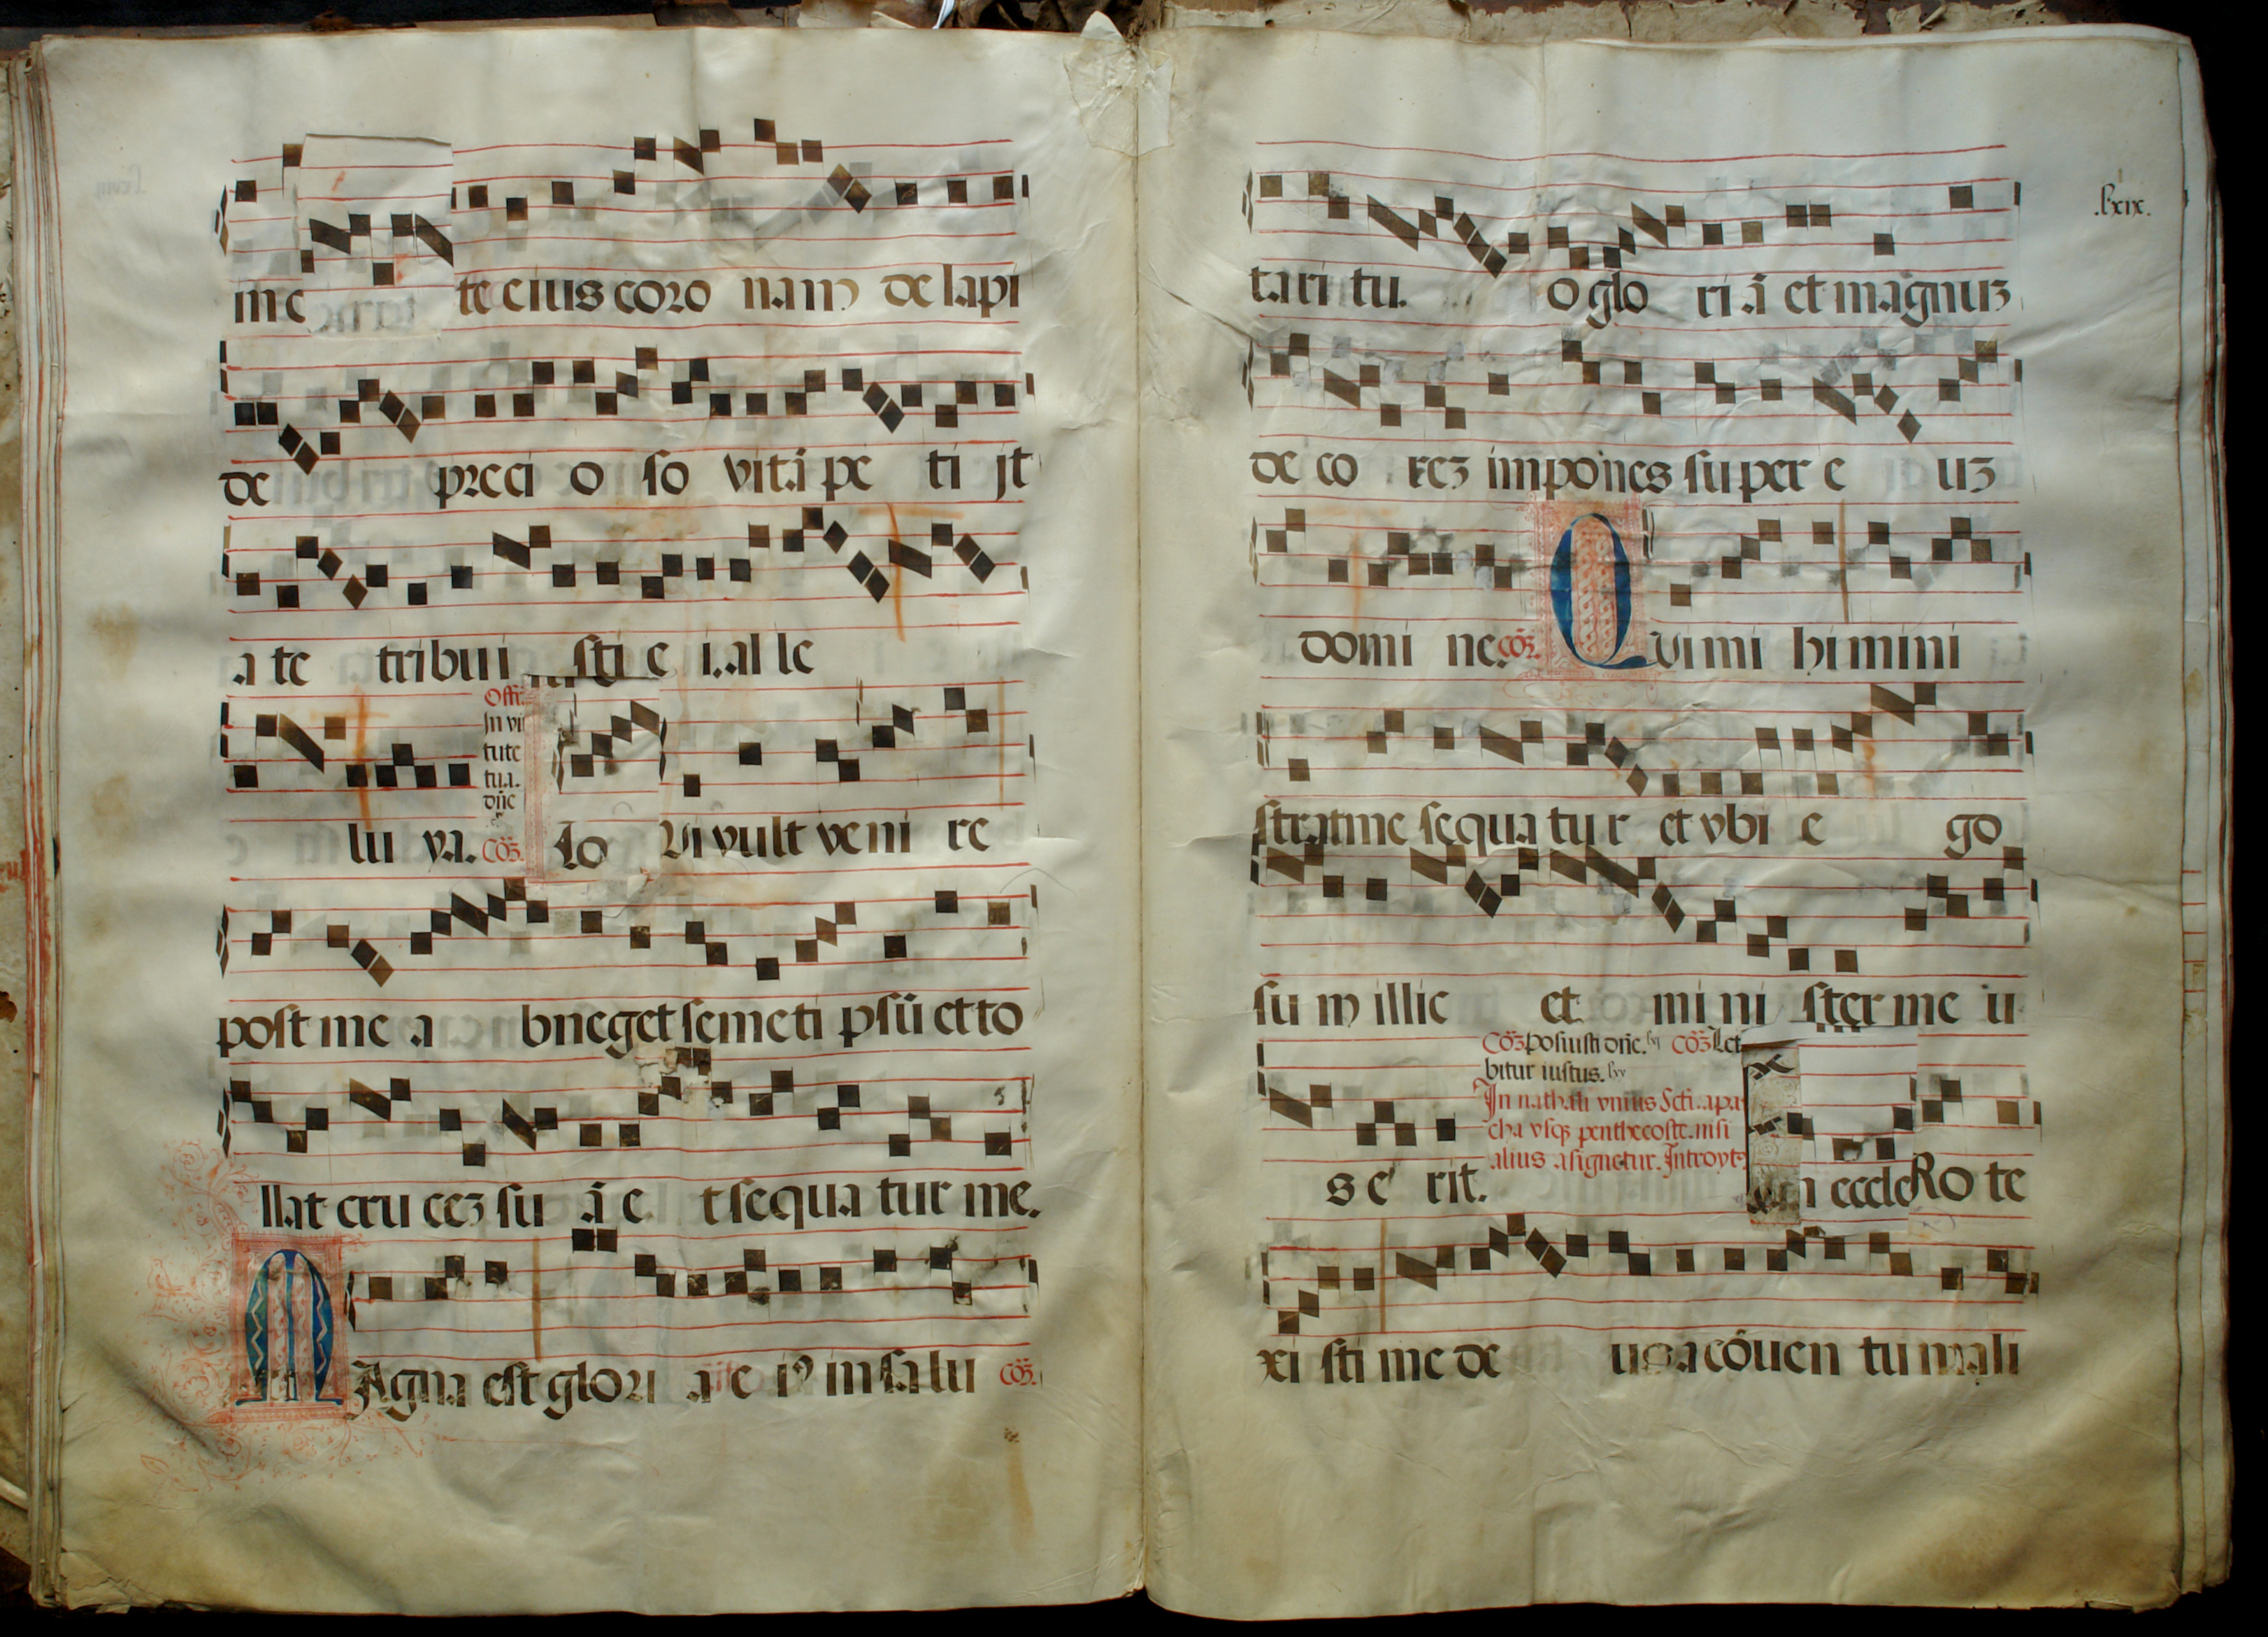 in c te eius coro nam de lapi
de preci o so vitā pe ti jt
a te tribui sti e i al le
Offr.
In vir
tute
tua.
dn̄e
lu ya. Cōz. Lo Vi vult veni re
post me a bneget semeti psū et to
llat cru cez su ā e t sequa tur me.
MAgna est glori a e iꝰ in sa lu Cōz.
.lxix.
tari tu. o glo ri ā et magnuz
de co rez impones super e uz
domi ne. Cōz. Qvi mi hi mini
strat me sequa tu r et vbi e go
su m illic et mi ni ster me u
Cōz posuisti dn̄e. Cōz Let
bitur iustus. lxv
In nathali vnius Scti. a pa
cha vsqz penthecoste. nisi
alius asignetur. Introyt
s e rit. n eccle Ro te
xi sti me de us a cōuen tu mali